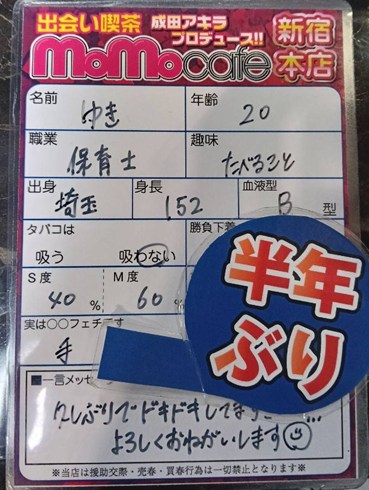 出会い喫茶 成田アキラ プロデュース!!
MoMocafé 新宿本店
名前 ゆき 年齢 20
職業 保育士 趣味 たべること
出身 埼玉 身長 152 血液型 B 型
タバコは 吸う 吸わない 勝負下着
S度 40 % M度 60
実は○○フェチです
手
半年
ぶり
■一言メッセ
久しぶりでドキドキしてます
よろしくおねがいします
※当店は援助交際・売春・買春行為は一切禁止となります※